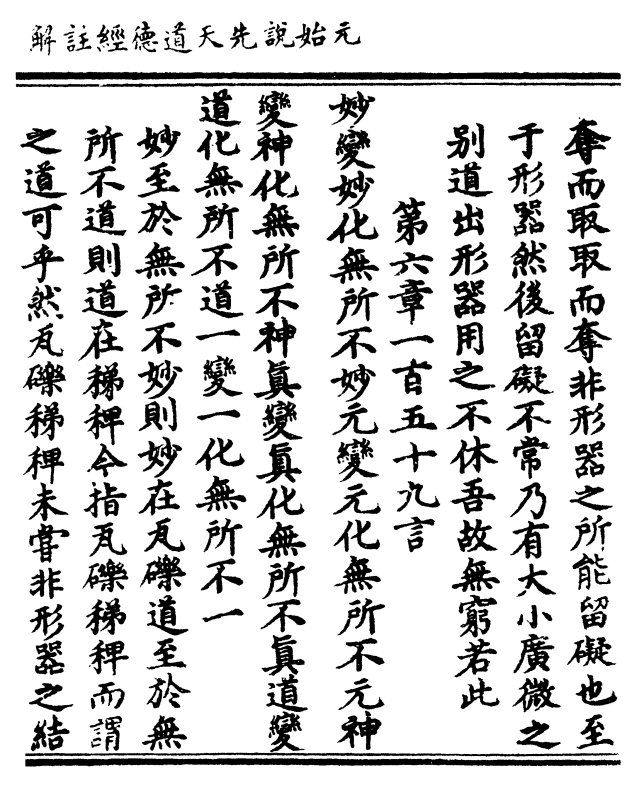 元始說先天道德經註解
奪而取取而奪非形器之所能留礙也至
于形器然後留礙不常乃有大小廣微之
别道出形器用之不休吾故無窮若此
第六章一百五十九言
妙變妙化無所不妙元變元化無所不元神
變神化無所不神眞變眞化無所不眞道變
道化無所不道一變一化無所不一
妙至於無所不妙則妙在瓦礫道至於無
所不道則道在稊稗今指瓦礫稊稗而謂
之道可乎然瓦礫稊稗未嘗非形器之結